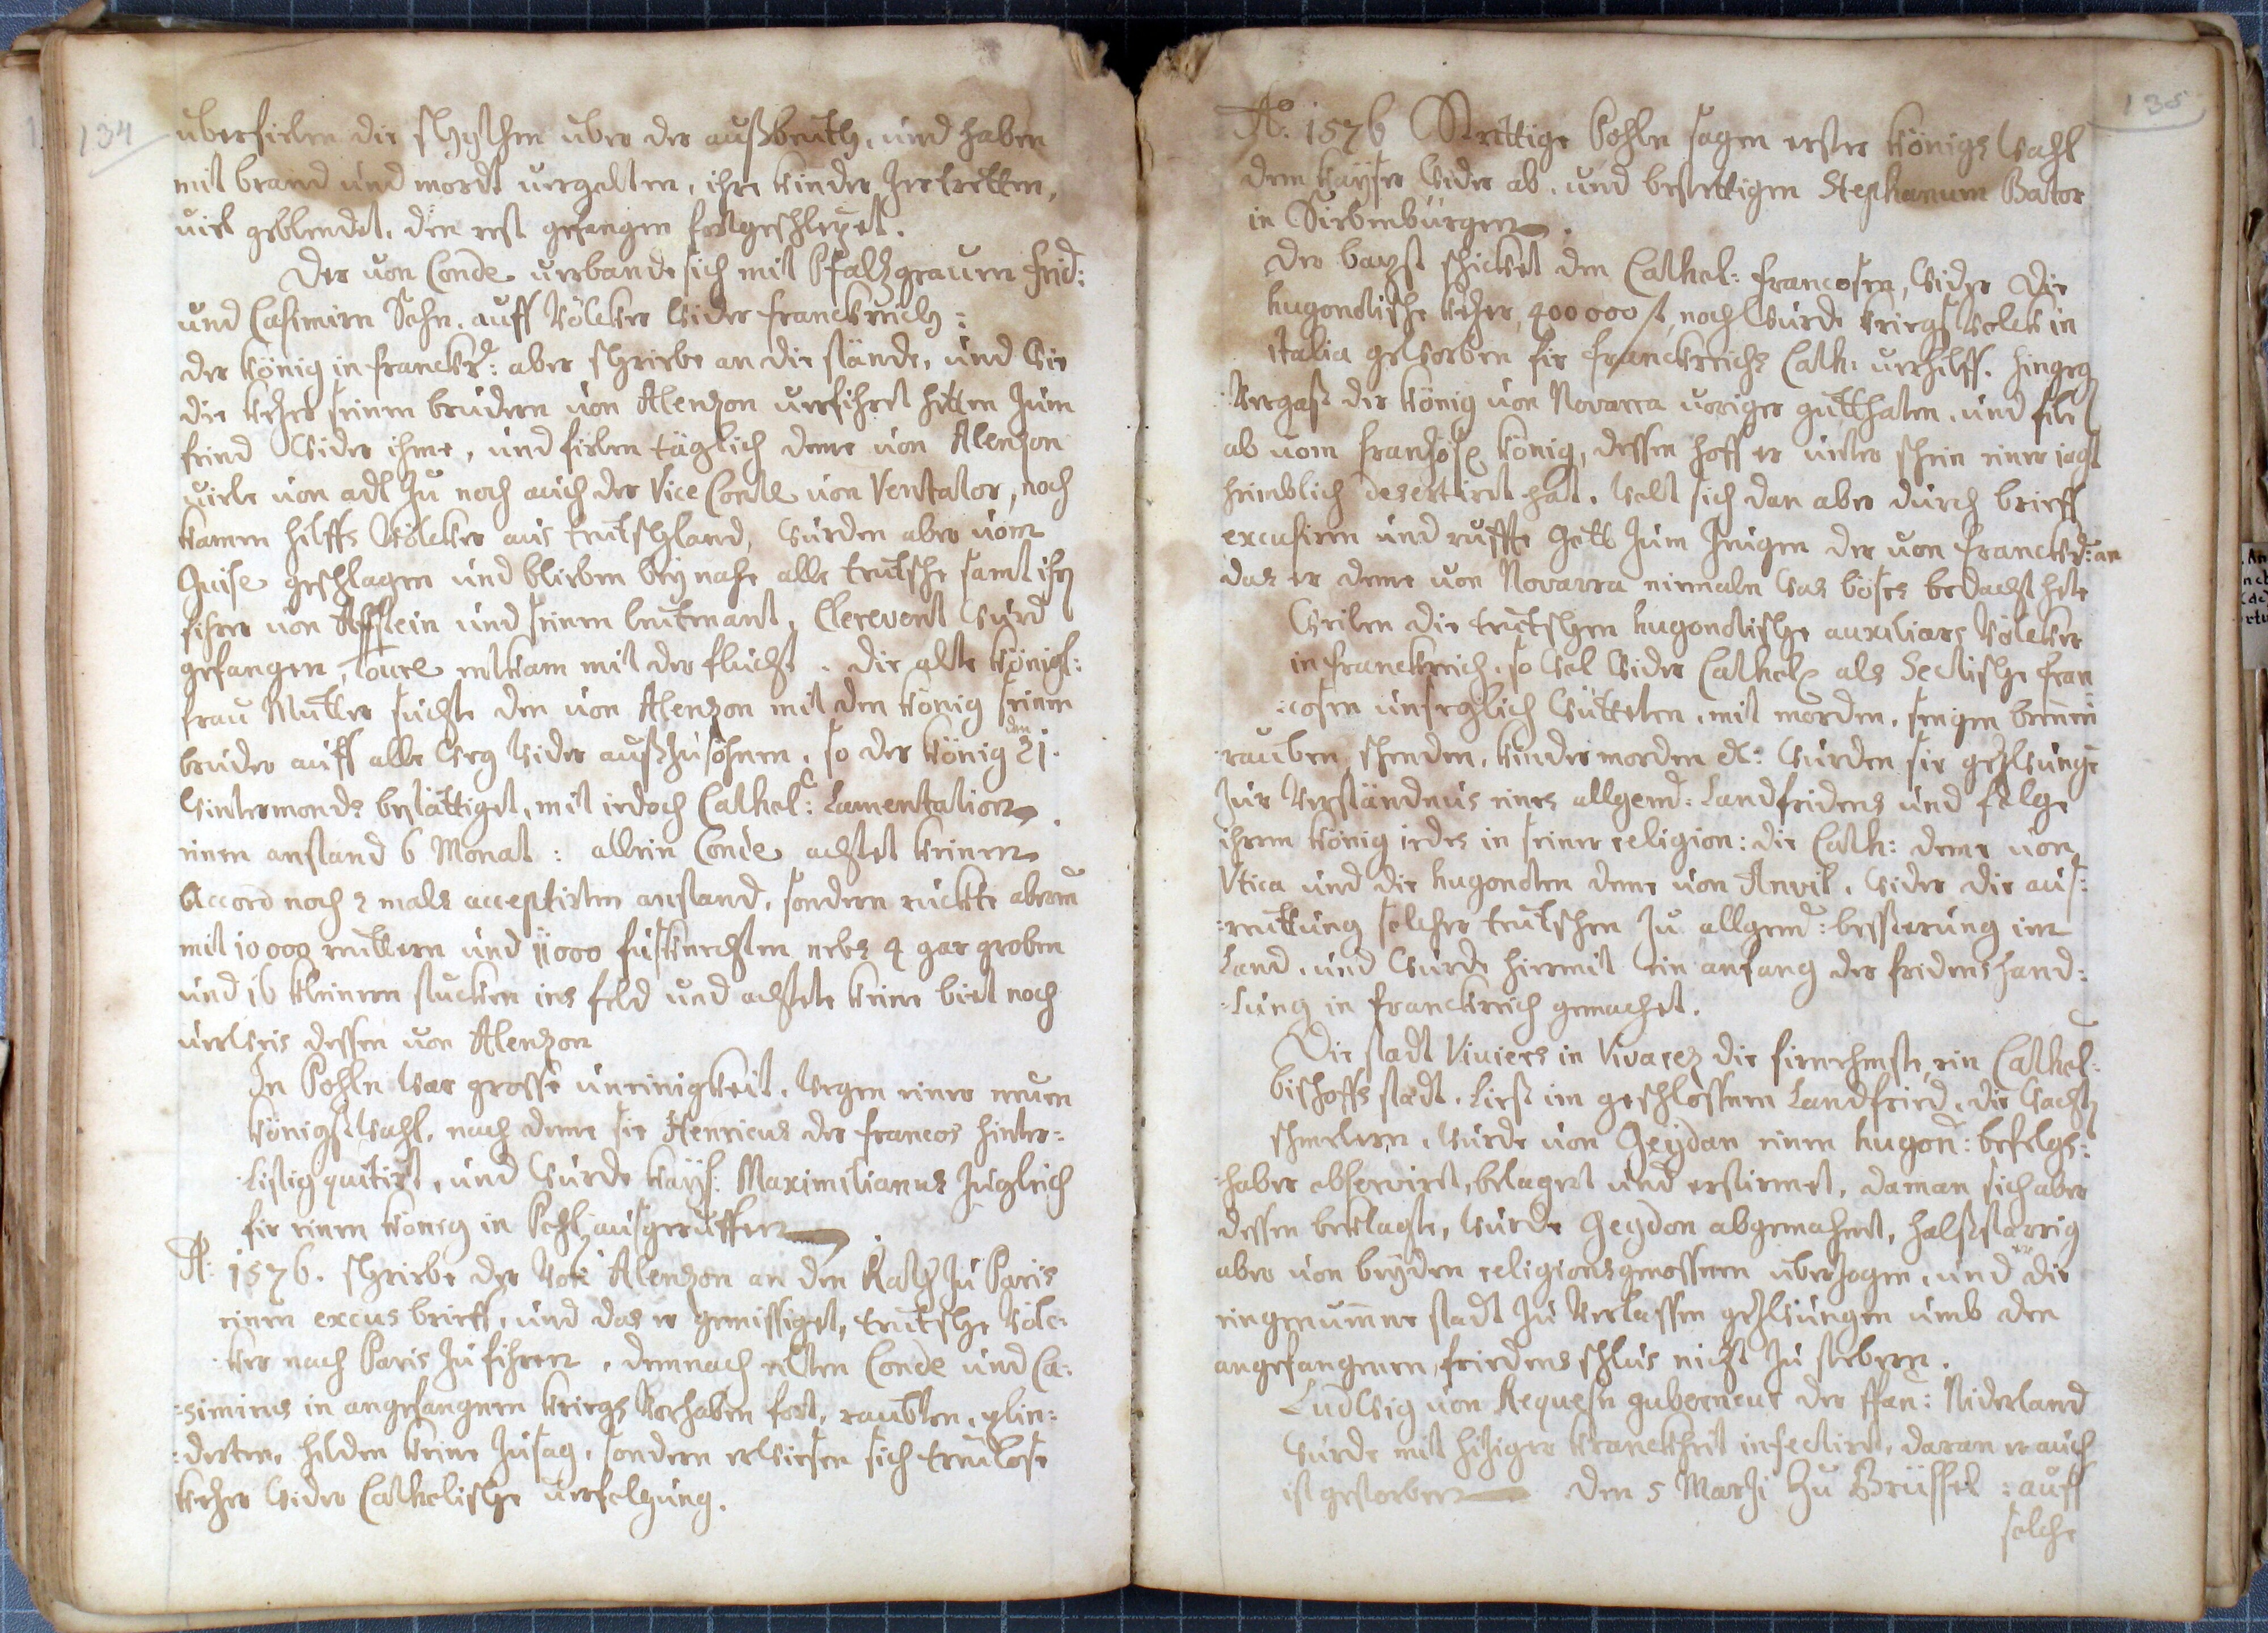 134
uberfielen die schythen uber der außbeuth, und haben
mit brand und mordt vergolten, ihre kinder zertretten,
viel geblendet, den rest gefangen fortgeschlepet.
Der von Conde verbande sich mit Pfaltzgraven frid:
und Casimirn Sohn. auff Völcker wider franckreich:
der König in franckr: aber schriebe an die stände, und wie
die ketzer seinen brudern von Alenzon verfihret hetten zum
feind wider ihme, und fielen täglich deme von Alenzon
viele von adl zu noch auch der Vice Conte von Ventator, noch
kamen hilffs Völcker aus teutschland, wurden aber vom
Guise geschlagen und blieben bey nahe alle teutsche samt ihr
fihrer von Affstein und seinem leutenant, Clerevent wurd
gefangen, Toure entkam mit der flucht. die alte Königl:
frau Mutter suchte den von Alenzon mit den König seinem
bruder auff alle weg wider außzusöhnen, so der König den 21.
wintermonds bestättiget, mit iedoch Cathol: Lamentation.
einen anstand 6 Monat: allein Conde achtet keinen
Accord noch 2 mals acceptirten anstand, sondern ruckte aberm
mit 10000 reuttern und 11000 fusknechten nebs 4 gar groben
und 16 kleinern stucken ins feld und achtete keine biet noch
verweis dessen von Alenzon
In Pohln war grosse uneinigkeit, wegen einer neuen
Königswahl, nach deme sie Henricus der francos hinter:
:listig quitirt, und wurde Kays: Maximilianus zugleich
fir einen König in Pohln ausgeruffen.
A: 1576. schriebe der Alenzon an den Rath zu Paris
einen excus brieff, und das er gemissiget, teutsche Völc:
:ker nach Paris zu fihren, demnach eilten Conde und Ca:
:simirus in angefangenen kriegs Vorhaben fort, raubten, plin:
:derten, hilden keine zusag, sondern erwiesen sich treulose
ketzer wider Catholische verfolgung.
135
Ao: 1576 Strittige Pohln sagen erster Königs Wahl
dem Kayser wider ab, und bestettigen Stephanum Bator
in Siebenbürgen.
Der bapst schicket den Cathol: francosen, wider die
hugonotische ketzer, 400000 f, noch wurde kriegs Volck in
italia geworben fir franckreichs Cath: verhilff. hingeg
Vergaß der König von Novarra voriger gutthaten, und fiel
ab vom französ König, dessen hoff er unter schein einer jagt
heimblich desertirt hat. wolt sich dan aber durch brieff
excusiren und ruffte Gott zum zeugen der von franckr: an
das er deme von Novarra niemaln was böses bedacht hete
Weilen die teutschen hugonotische auxiliars Völcker
in franckreich, so wol wider Cathol als Sectische fran
:cosen unseglich wütteten, mit morden, sengen brenen
rauben, schenden, kinder morden etc: wurden sie gezwunge
zur Verständnus eines allgemd: Landfridens und folge
ihrem König ieder in seiner religion: die Cath: deme von
Utica und die hugonoten deme von Anvil, wider die aus:
:reuttung solcher teutschen zu allgemd: besserung im
Land, und wurde hiermit ein anfang der fridenshand:
:lung in franckreich gemachet.
Die stadt Viviers in Vivarez die firnehmste, ein Cathol:
bischoffs stadt. Ließ im geschlossenen Landfried, die wacht
schmelern, wurde von Geydan einen hugon: befelgs:
:haber observirt, belagert und erstirmet, daman sich aber
dessen beklagte, wurde Geydon abgemahnt, halßstarrig
aber von beyden religionsgenossenen uberzogen, und die
eingenumene stadt zu verlassen gezwungen umb den
angefangenen friedens schlus nicht zu stehren.
Ludwig von Requesn guberneur der span: Niderland
wurde mit hiziger kranckheit infectirt, daran er auch
ist gestorben den 5 Marzi zu Brüssel: auff
solche